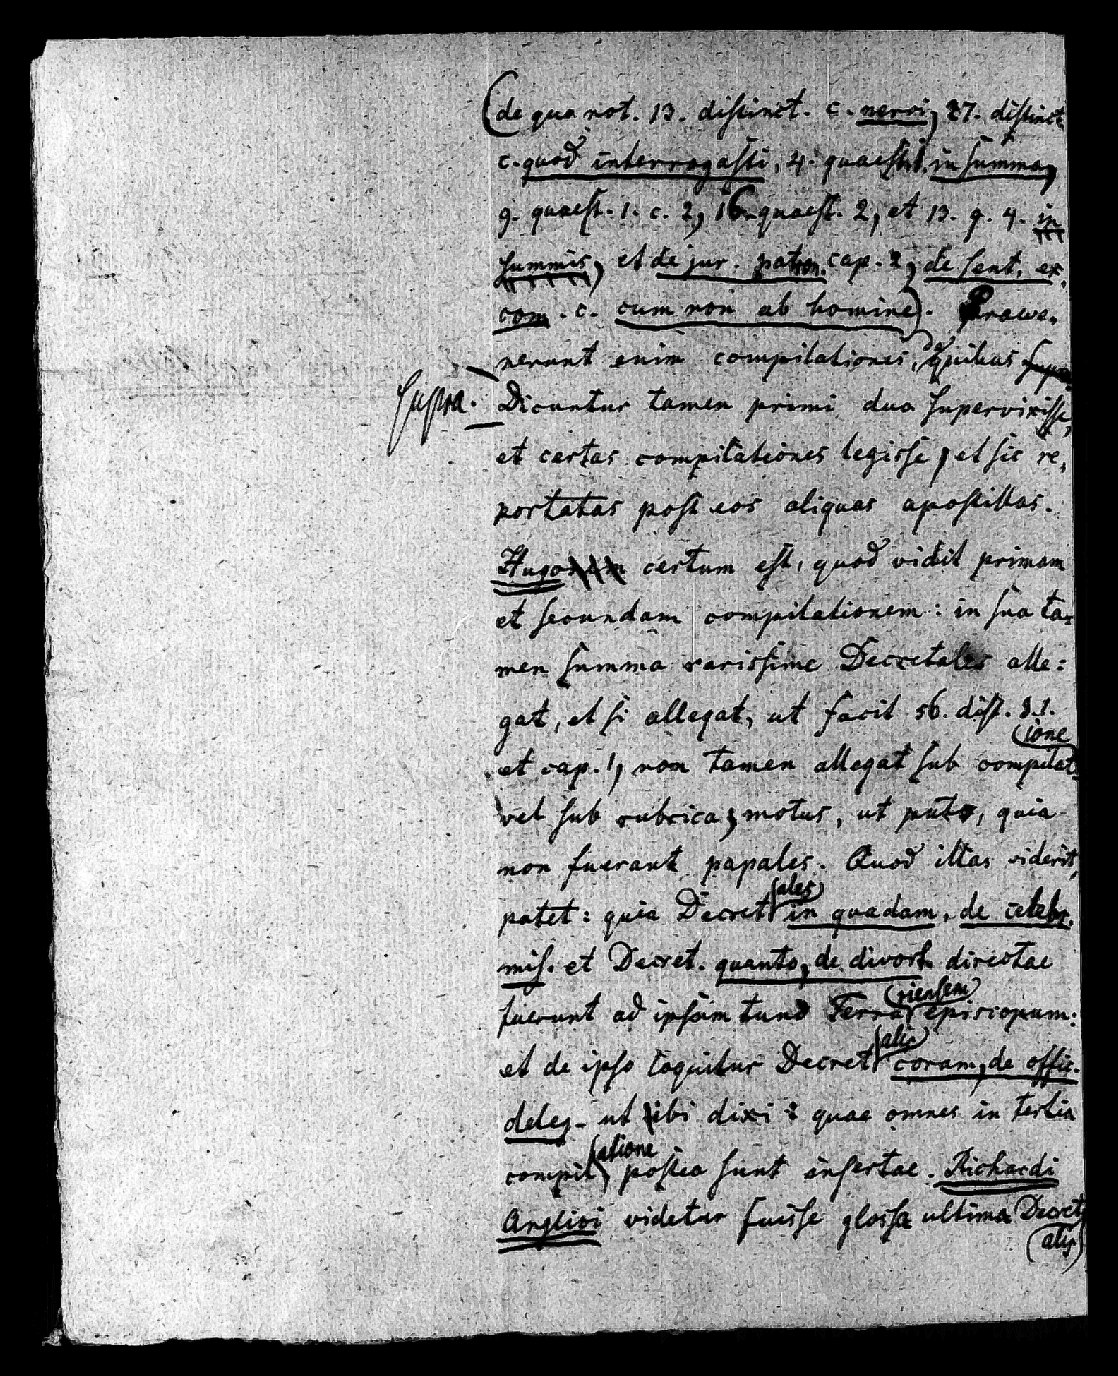 (de qua not. 13. distinct. c. nervi, 27. distinct.
c. quod interrogasti, 4. quaest. in summa,
9. quaest. 1. c. 2, 16. quaest. 2, et 13. q. 4. in
summis, et de jur. patron. cap. 2, de sent. ex,
com. c. cum non ab homine). Praeve,
nerunt enim compilationes, de quibus
supra. Dicuntur tamen primi duo supervixisse,
et certas compilationes legisse, et sic re,
portatas post eos aliquas apostillas.
Hugo certum est, quod vidit primam
et secundam compilationem: in sua ta=
men summa rarissime Decretales alle:
gat, et si allegat, ut facit 56. dist. §.1.
et cap. 1, non tamen allegat sub compilatione
vel sub rubrica, motus, ut puto, quia
non fuerant papales. Quod illas viderit,
patet: quia Decretales in quadam, de celebr.
mis. et Decret. quanto, de divort. directae
fuerunt ad ipsum tunc Ferrariensem episcopum:
et de ipso loquitur Decretalis coram, de offic.
deleg. ut ibi dixi: quae omnes in tertia
compilatione postea sunt insertae. Richardi
Anglici videtur fuisse glossa ultima Decret
(alis)